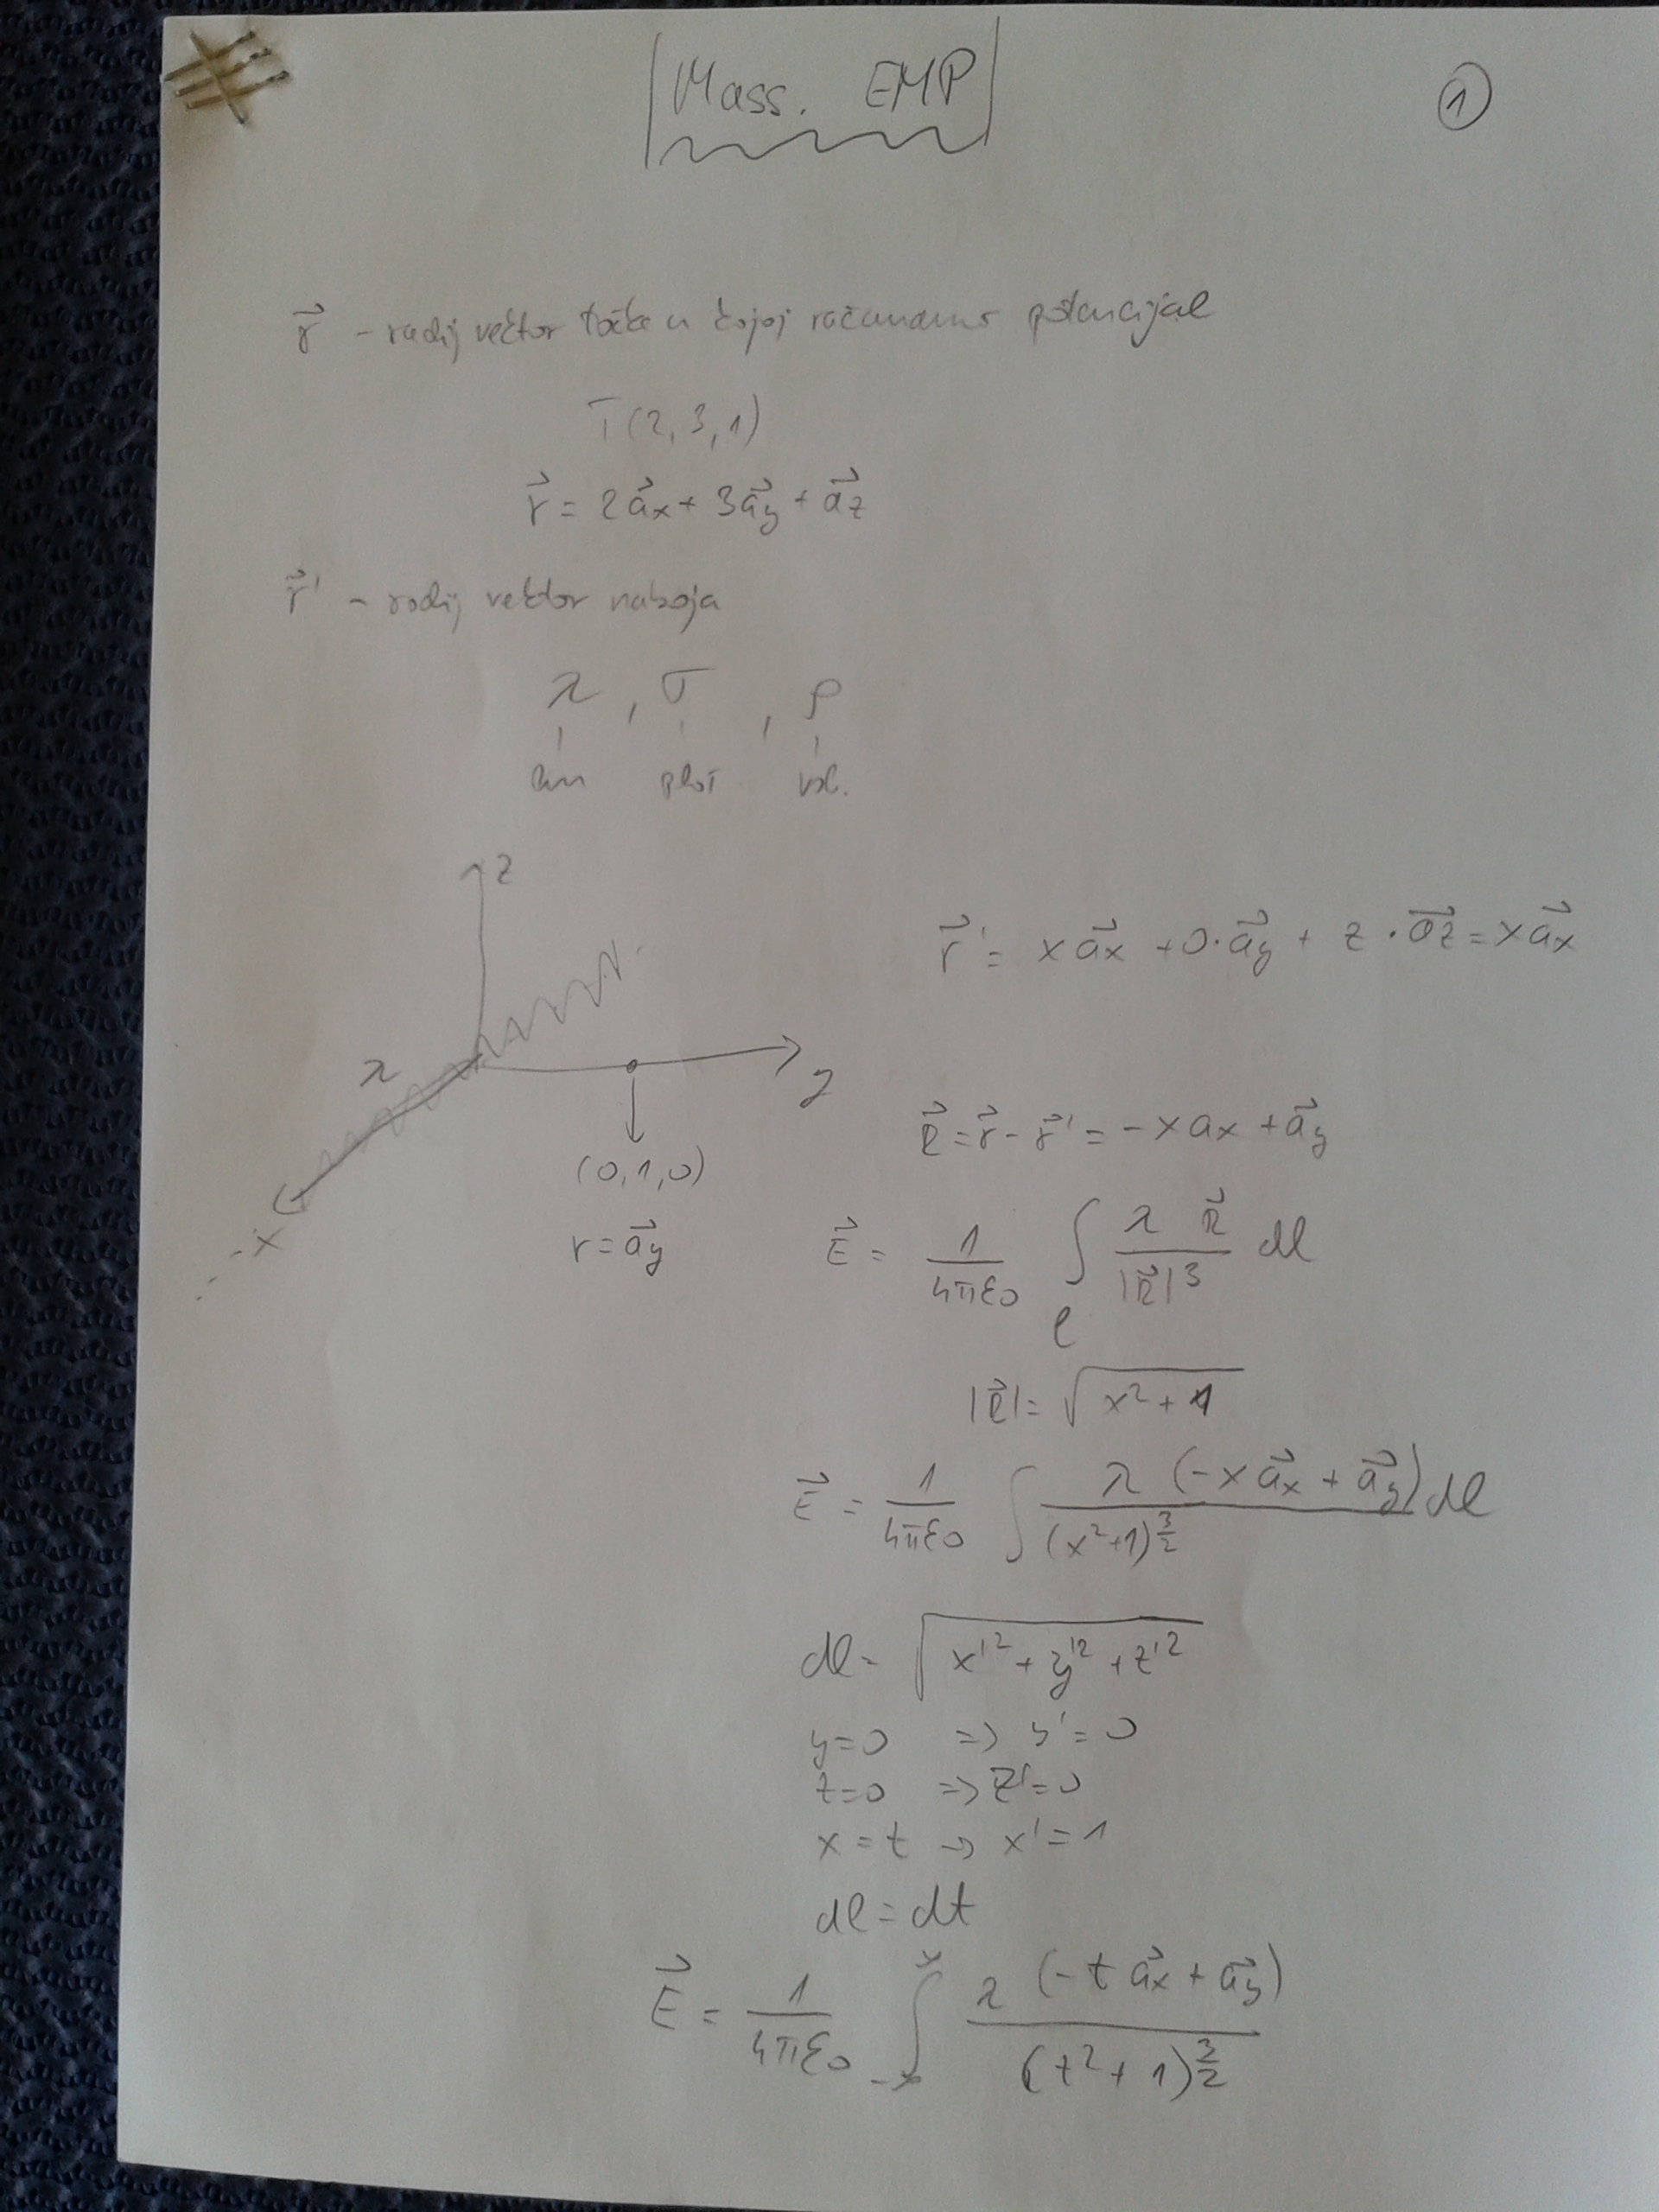 Mass. EMP
1
r⃗ - radij vektor točke u kojoj računamo potencijal
T(2,3,1)
r⃗ = 2a⃗x + 3a⃗y + a⃗z
r⃗' - radij vektor naboja
λ , σ , ρ
lin ploš vol.
z
r⃗' = x a⃗x + 0·a⃗y + z·a⃗z = x a⃗x
λ
y
(0,1,0)
x
r = a⃗y
R⃗ = r⃗ - r⃗' = -x ax + a⃗y
E⃗ = 1/4πε0 ∫l λ R⃗/|R⃗|³ dl
|R⃗| = √(x² + 1)
E⃗ = 1/4πε0 ∫ λ(-x a⃗x + a⃗y)/(x²+1)^(3/2) dl
dl = √(x'² + y'² + z'²)
y=0 => y'=0
z=0 => z'=0
x=t → x'=1
dl = dt
E⃗ = 1/4πε0 ∫_{-∞}^{∞} λ (-t a⃗x + a⃗y)/(t²+1)^(3/2)